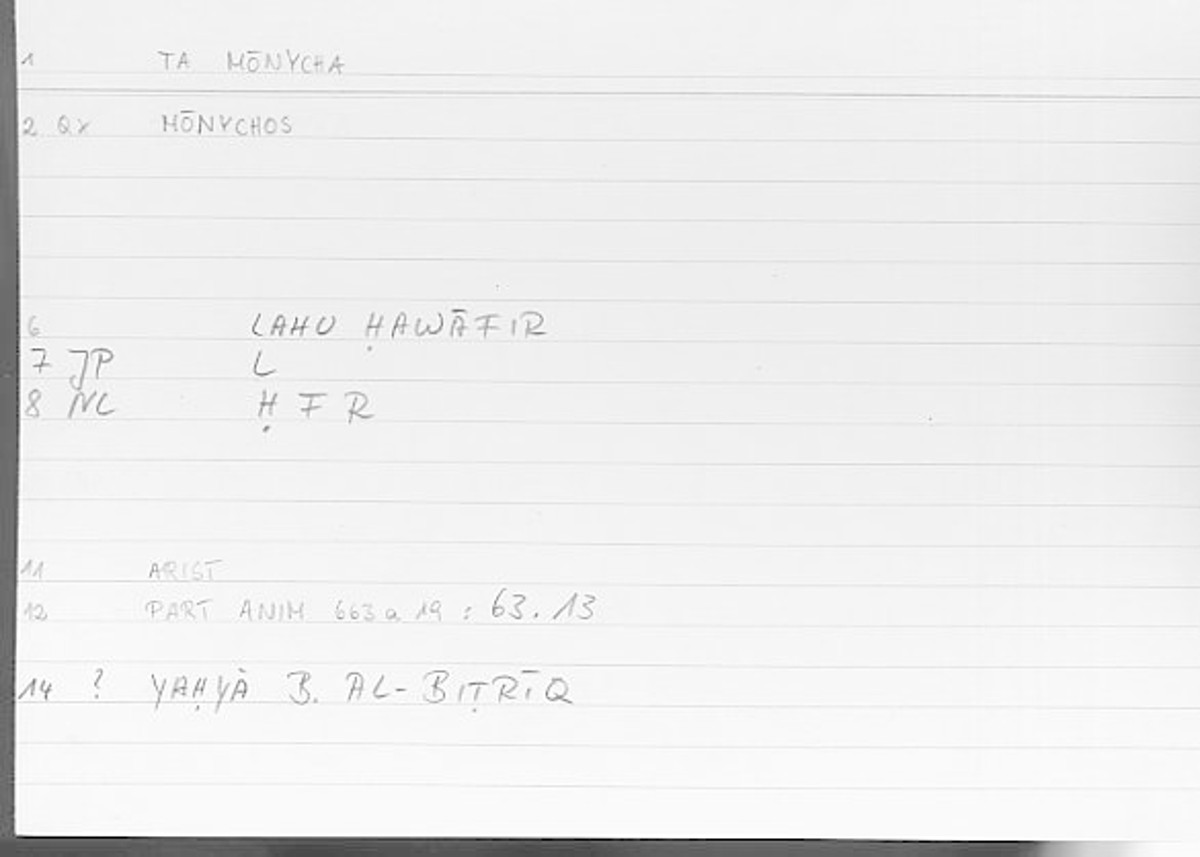 1 TA MŌNYCHA
2 Qx MŌNYCHOS
6 LAHU ḤAWĀFIR
7 JP L
8 NL Ḥ F R
11 ARIST
12 PART ANIM 663a 19 : 63.13
14 ? YAḤYÀ B. AL-BIṬRĪQ